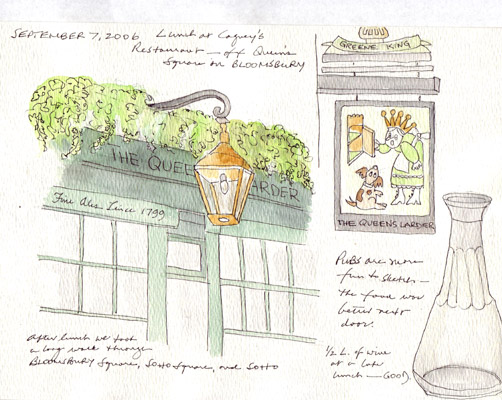 SEPTEMBER 7, 2006 Lunch at Caguey's
Restaurant — off Queen
Square in BLOOMSBURY
GREENE KING
THE QUEENS LARDER
Fine Ales Since 1799
THE QUEENS LARDER
Pubs are more
fun to sketch —
the food was
better next
door.
after lunch we took
a long walk through
BLOOMSBURY Square, SOHO Square, and SOHO
1/2 L. of wine
at a late
lunch — GOOD